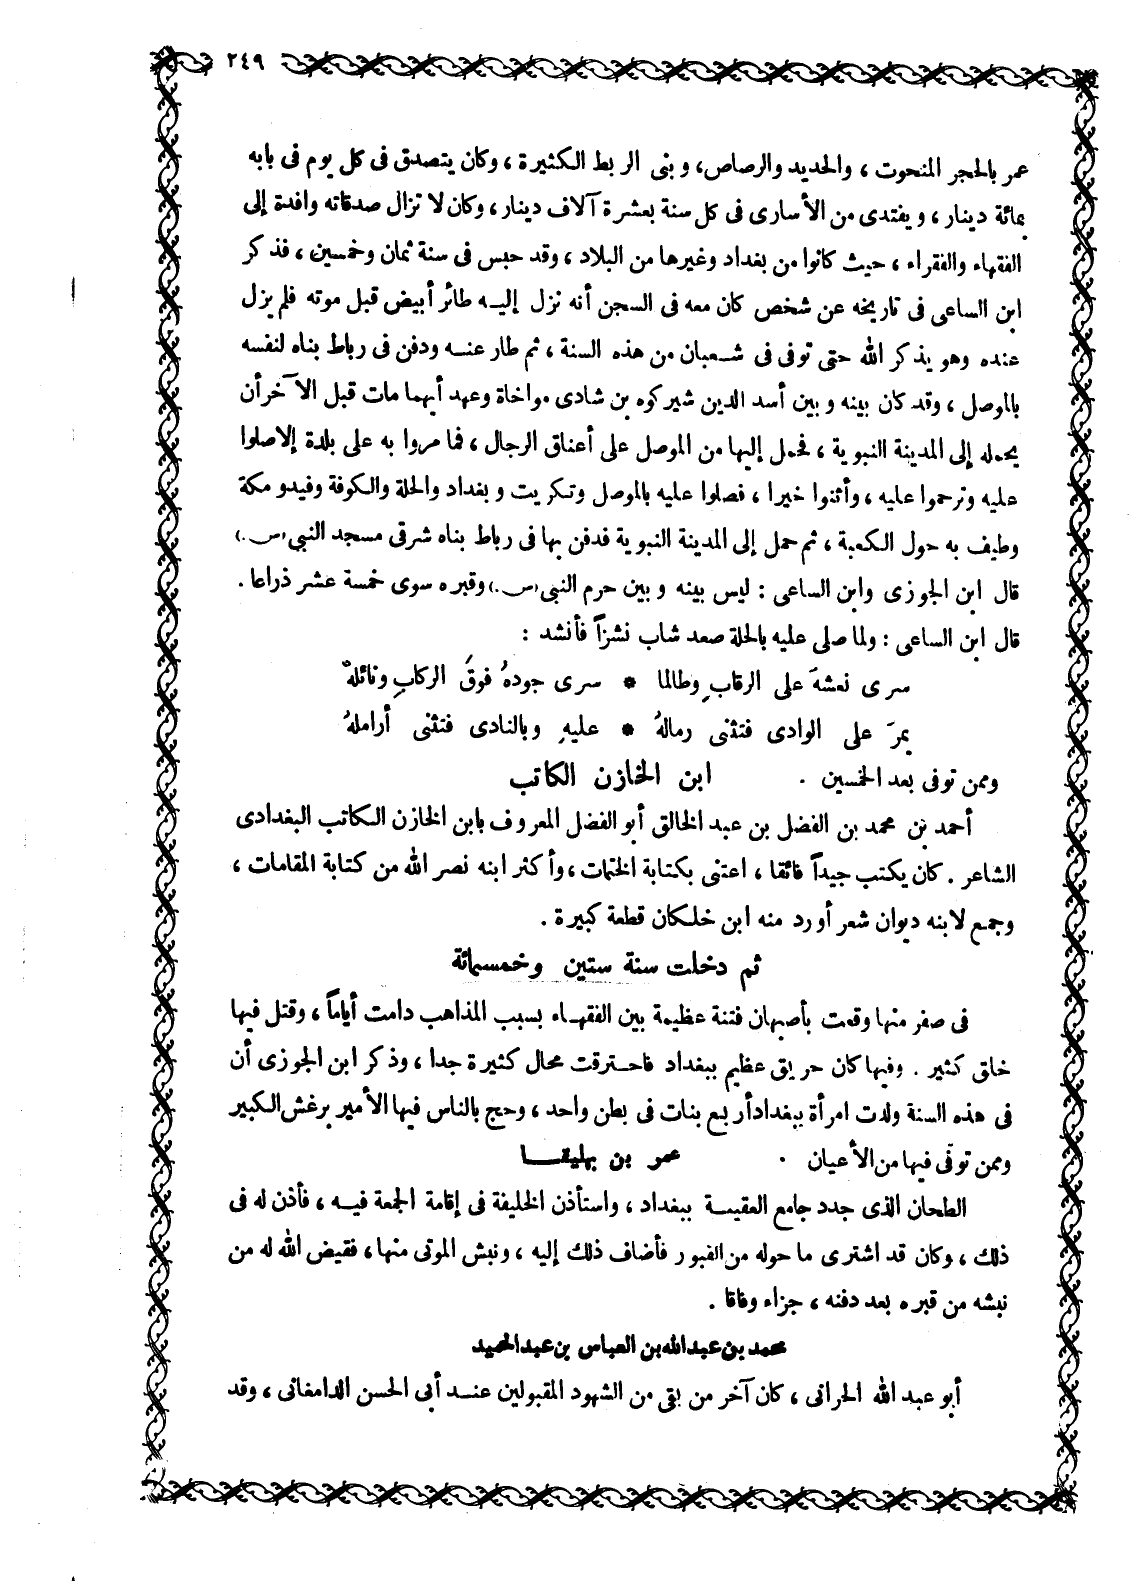 ٢٤٩
عمر بالحجر المنحوت ، والحديد والرصاص، وبنى الربط الكثيرة ، وكان يتصدق فى كل يوم فى بابه
بمائة دينار ، ويفتدى من الأسارى فى كل سنة بعشرة آلاف دينار ، وكان لا تزال صدقاته وافدة إلى
الفقهاء والفقراء ، حيث كانوا من بغداد وغيرها من البلاد ، وقد حبس فى سنة ثمان وخمسين ، فذكر
ابن الساعى فى تاريخه عن شخص كان معه فى السجن أنه نزل إليه طائر أبيض قبل موته فلم يزل
عنده وهو يذكر الله حتى توفى فى شعبان من هذه السنة ، ثم طار عنه ودفن فى رباط بناه لنفسه
بالموصل ، وقد كان بينه وبين أسد الدين شيركوه بن شادى مواخاة وعهد أيهما مات قبل الآخر أن
يحمله إلى المدينة النبوية ، فحمل إليها من الموصل على أعناق الرجال ، فما مروا به على بلدة إلا صلوا
عليه وترحموا عليه ، وأثنوا خيرا ، فصلوا عليه بالموصل وتكريت وبغداد والحلة والكوفة وفيدو مكة
وطيف به حول الكعبة ، ثم حمل إلى المدينة النبوية فدفن بها فى رباط بناه شرقى مسجد النبي (س.)
قال ابن الجوزى وابن الساعى : ليس بينه وبين حرم النبي (س.) وقبره سوى خمسة عشر ذراعا .
قال ابن الساعى : ولما صلى عليه بالحلة صعد شاب نشزاً فأنشد :
سرى نعشهَ على الرقابِ وطالما * سرى جودهُ فوقَ الركابِ ونائلهْ
يمرَ على الوادى فتثنى رمالهُ * عليهِ وبالنادى فتثنى أراملهُ
وممن توفى بعد الخمسين . ابن الخازن الكاتب
أحمد بن محمد بن الفضل بن عبد الخالق أبو الفضل المعروف بابن الخازن الكاتب البغدادى
الشاعر . كان يكتب جيداً فائقا ، اعتنى بكتابة الختمات ، وأكثر ابنه نصر الله من كتابة المقامات ،
وجمع لابنه ديوان شعر أورد منه ابن خلكان قطعة كبيرة .
ثم دخلت سنة ستين وخمسمائة
فى صفر منها وقعت بأصبهان فتنة عظيمة بين الفقهاء بسبب المذاهب دامت أياماً ، وقتل فيها
خلق كثير . وفيها كان حريق عظيم ببغداد فاحترقت محال كثيرة جدا ، وذكر ابن الجوزى أن
فى هذه السنة ولدت امرأة ببغداد أربع بنات فى بطن واحد ، وحج بالناس فيها الأمير برغش الكبير
وممن توفّى فيها من الأعيان . عمر بن بهليقا
الطحان الذى جدد جامع العقيبة ببغداد ، واستأذن الخليفة فى إقامة الجمعة فيه ، فأذن له فى
ذلك ، وكان قد اشترى ما حوله من القبور فأضاف ذلك إليه ، ونبش الموتى منها ، فقيض الله له من
نبشه من قبره بعد دفنه ، جزاء وفاقا .
محمد بن عبد الله بن العباس بن عبد الحميد
أبو عبد الله الحرانى ، كان آخر من بقى من الشهود المقبولين عند أبى الحسن الدامغانى ، وقد